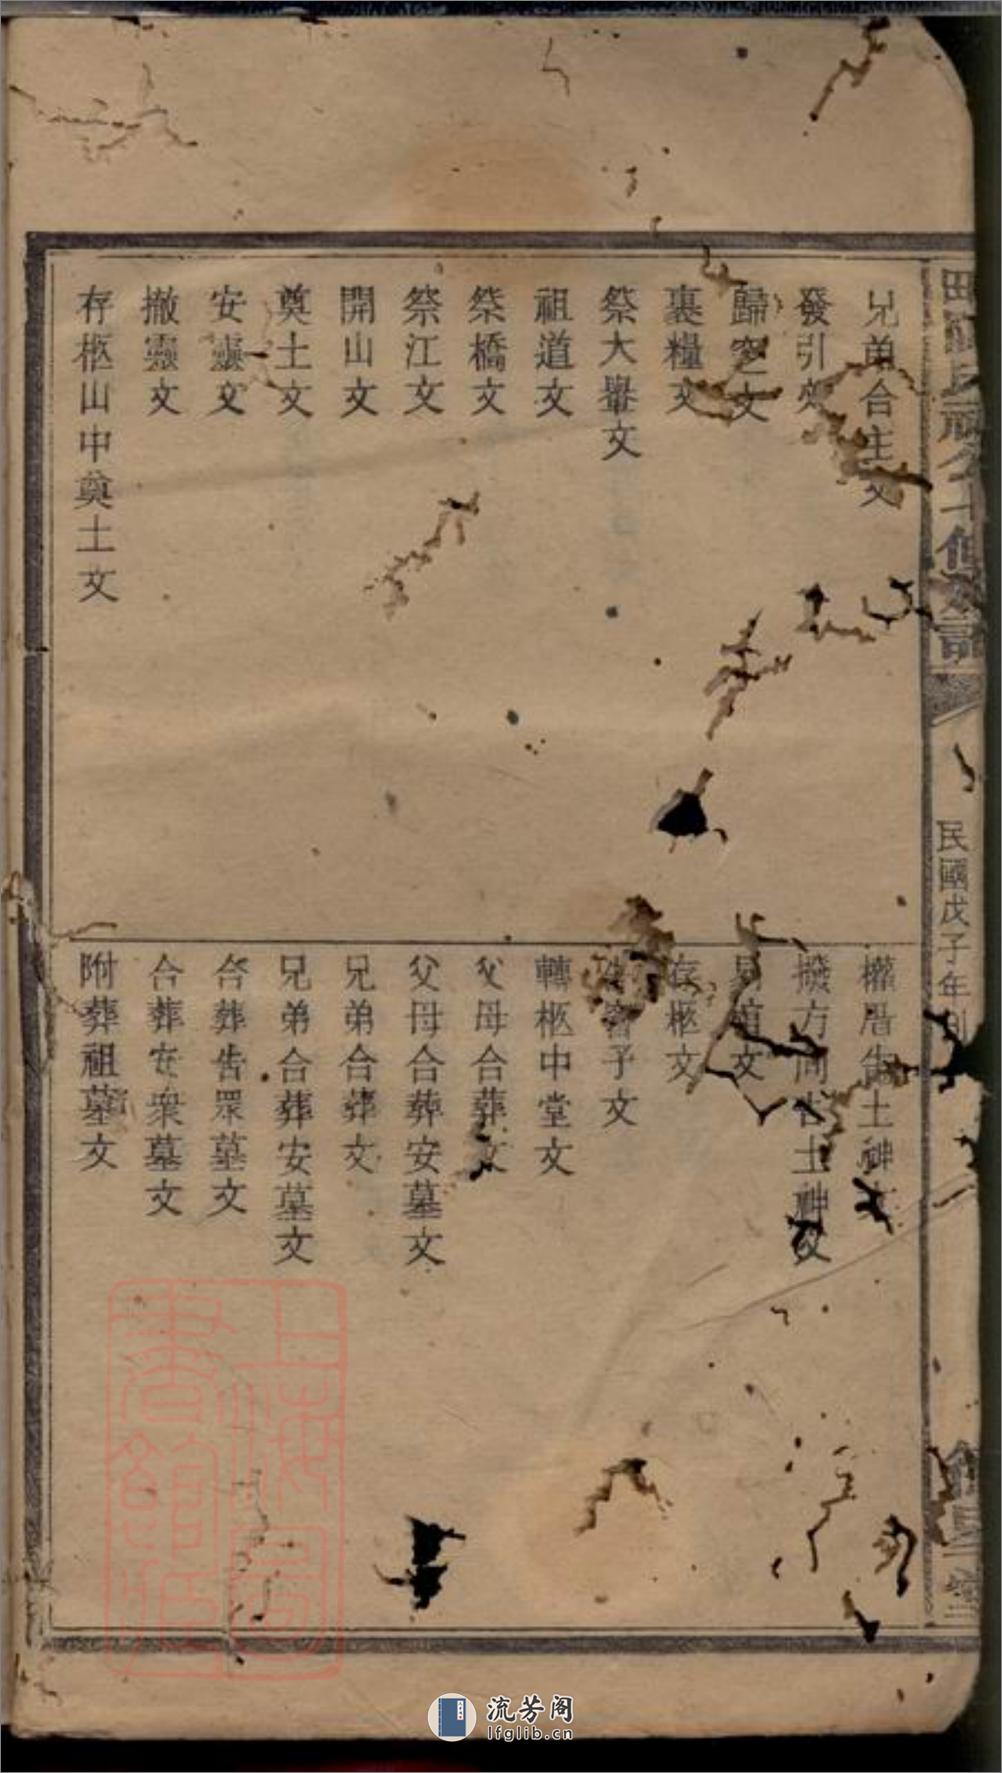 兄弟合主文
發引文
歸窆文
裹糧文
祭大轝文
祖道文
祭橋文
祭江文
開山文
奠土文
安靈文
撤靈文
存柩山中奠土文
權厝告土神文
撥方向告土神文
文
存柩文
文
轉柩中堂文
父母合葬文
父母合葬安墓文
兄弟合葬文
兄弟合葬安墓文
合葬告眾墓文
合葬安衆墓文
附葬祖墓文
民國戊子年
堂
上海圖書館藏
流芳阁
lfglib.cn